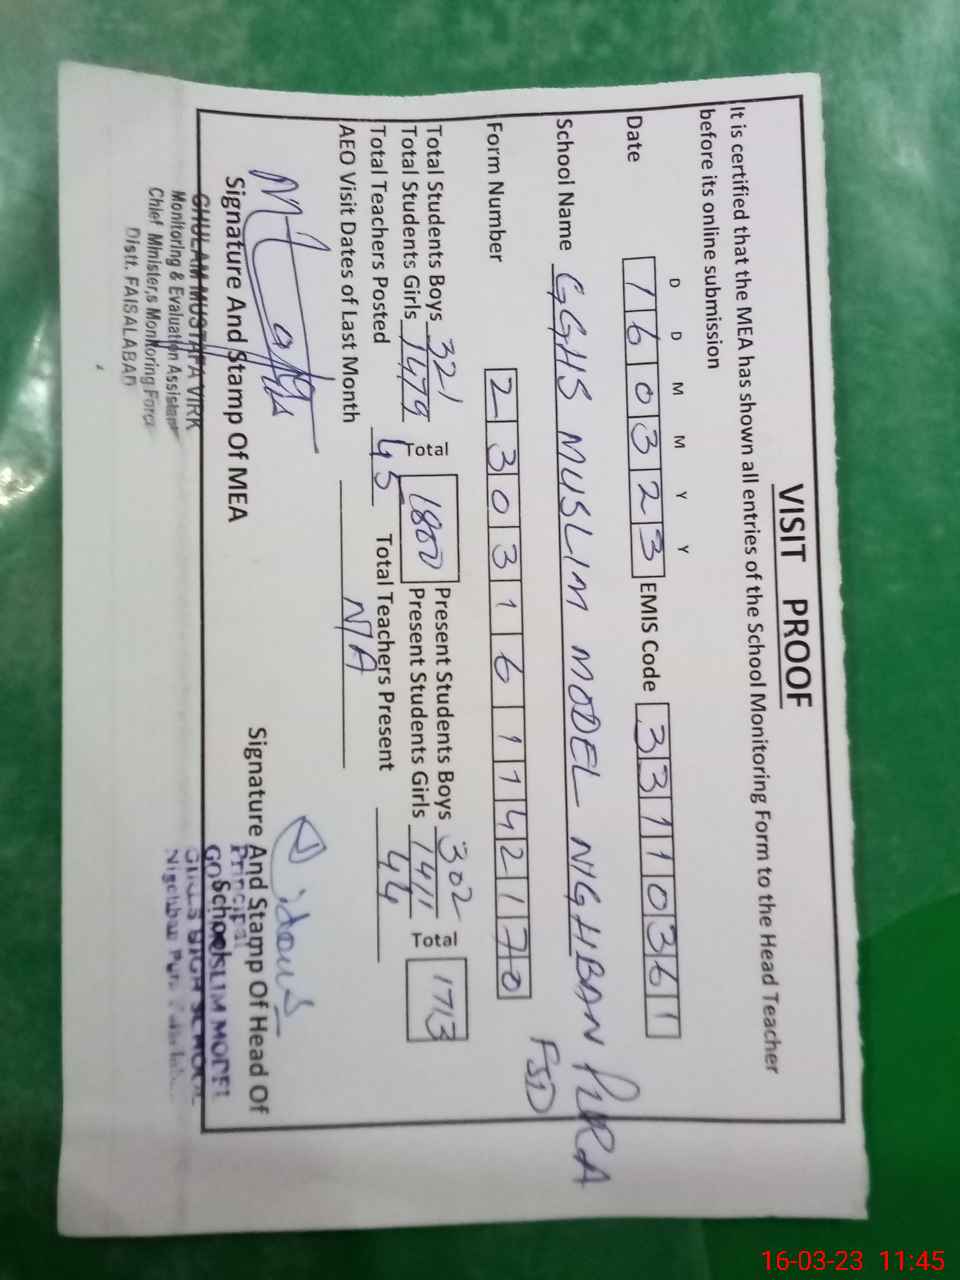 VISIT PROOF
It is certified that the MEA has shown all entries of the School Monitoring Form to the Head Teacher
before its online submission
D D M M Y Y
Date 1 6 0 3 2 3 EMIS Code 3 3 1 1 0 3 6 1
School Name GGHS MUSLIM MODEL NIGHBAN PURA
FSD
Form Number 2 3 0 3 1 6 1 1 4 2 1 7 0
Total Students Boys 321 Total 1800 Present Students Boys 302 Total 1713
Total Students Girls 1479 Present Students Girls 1411
Total Teachers Posted 45 Total Teachers Present 44
AEO Visit Dates of Last Month N/A
Signature And Stamp Of MEA
Signature And Stamp Of Head Of
School
GHULAM MUSTAFA VIRK
Monitoring & Evaluation Assistant
Chief Minister,s Monitoring Force
Distt. FAISALABAD
Principal
MUSLIM MODEL
GIRLS HIGH SCHOOL
16-03-23 11:45